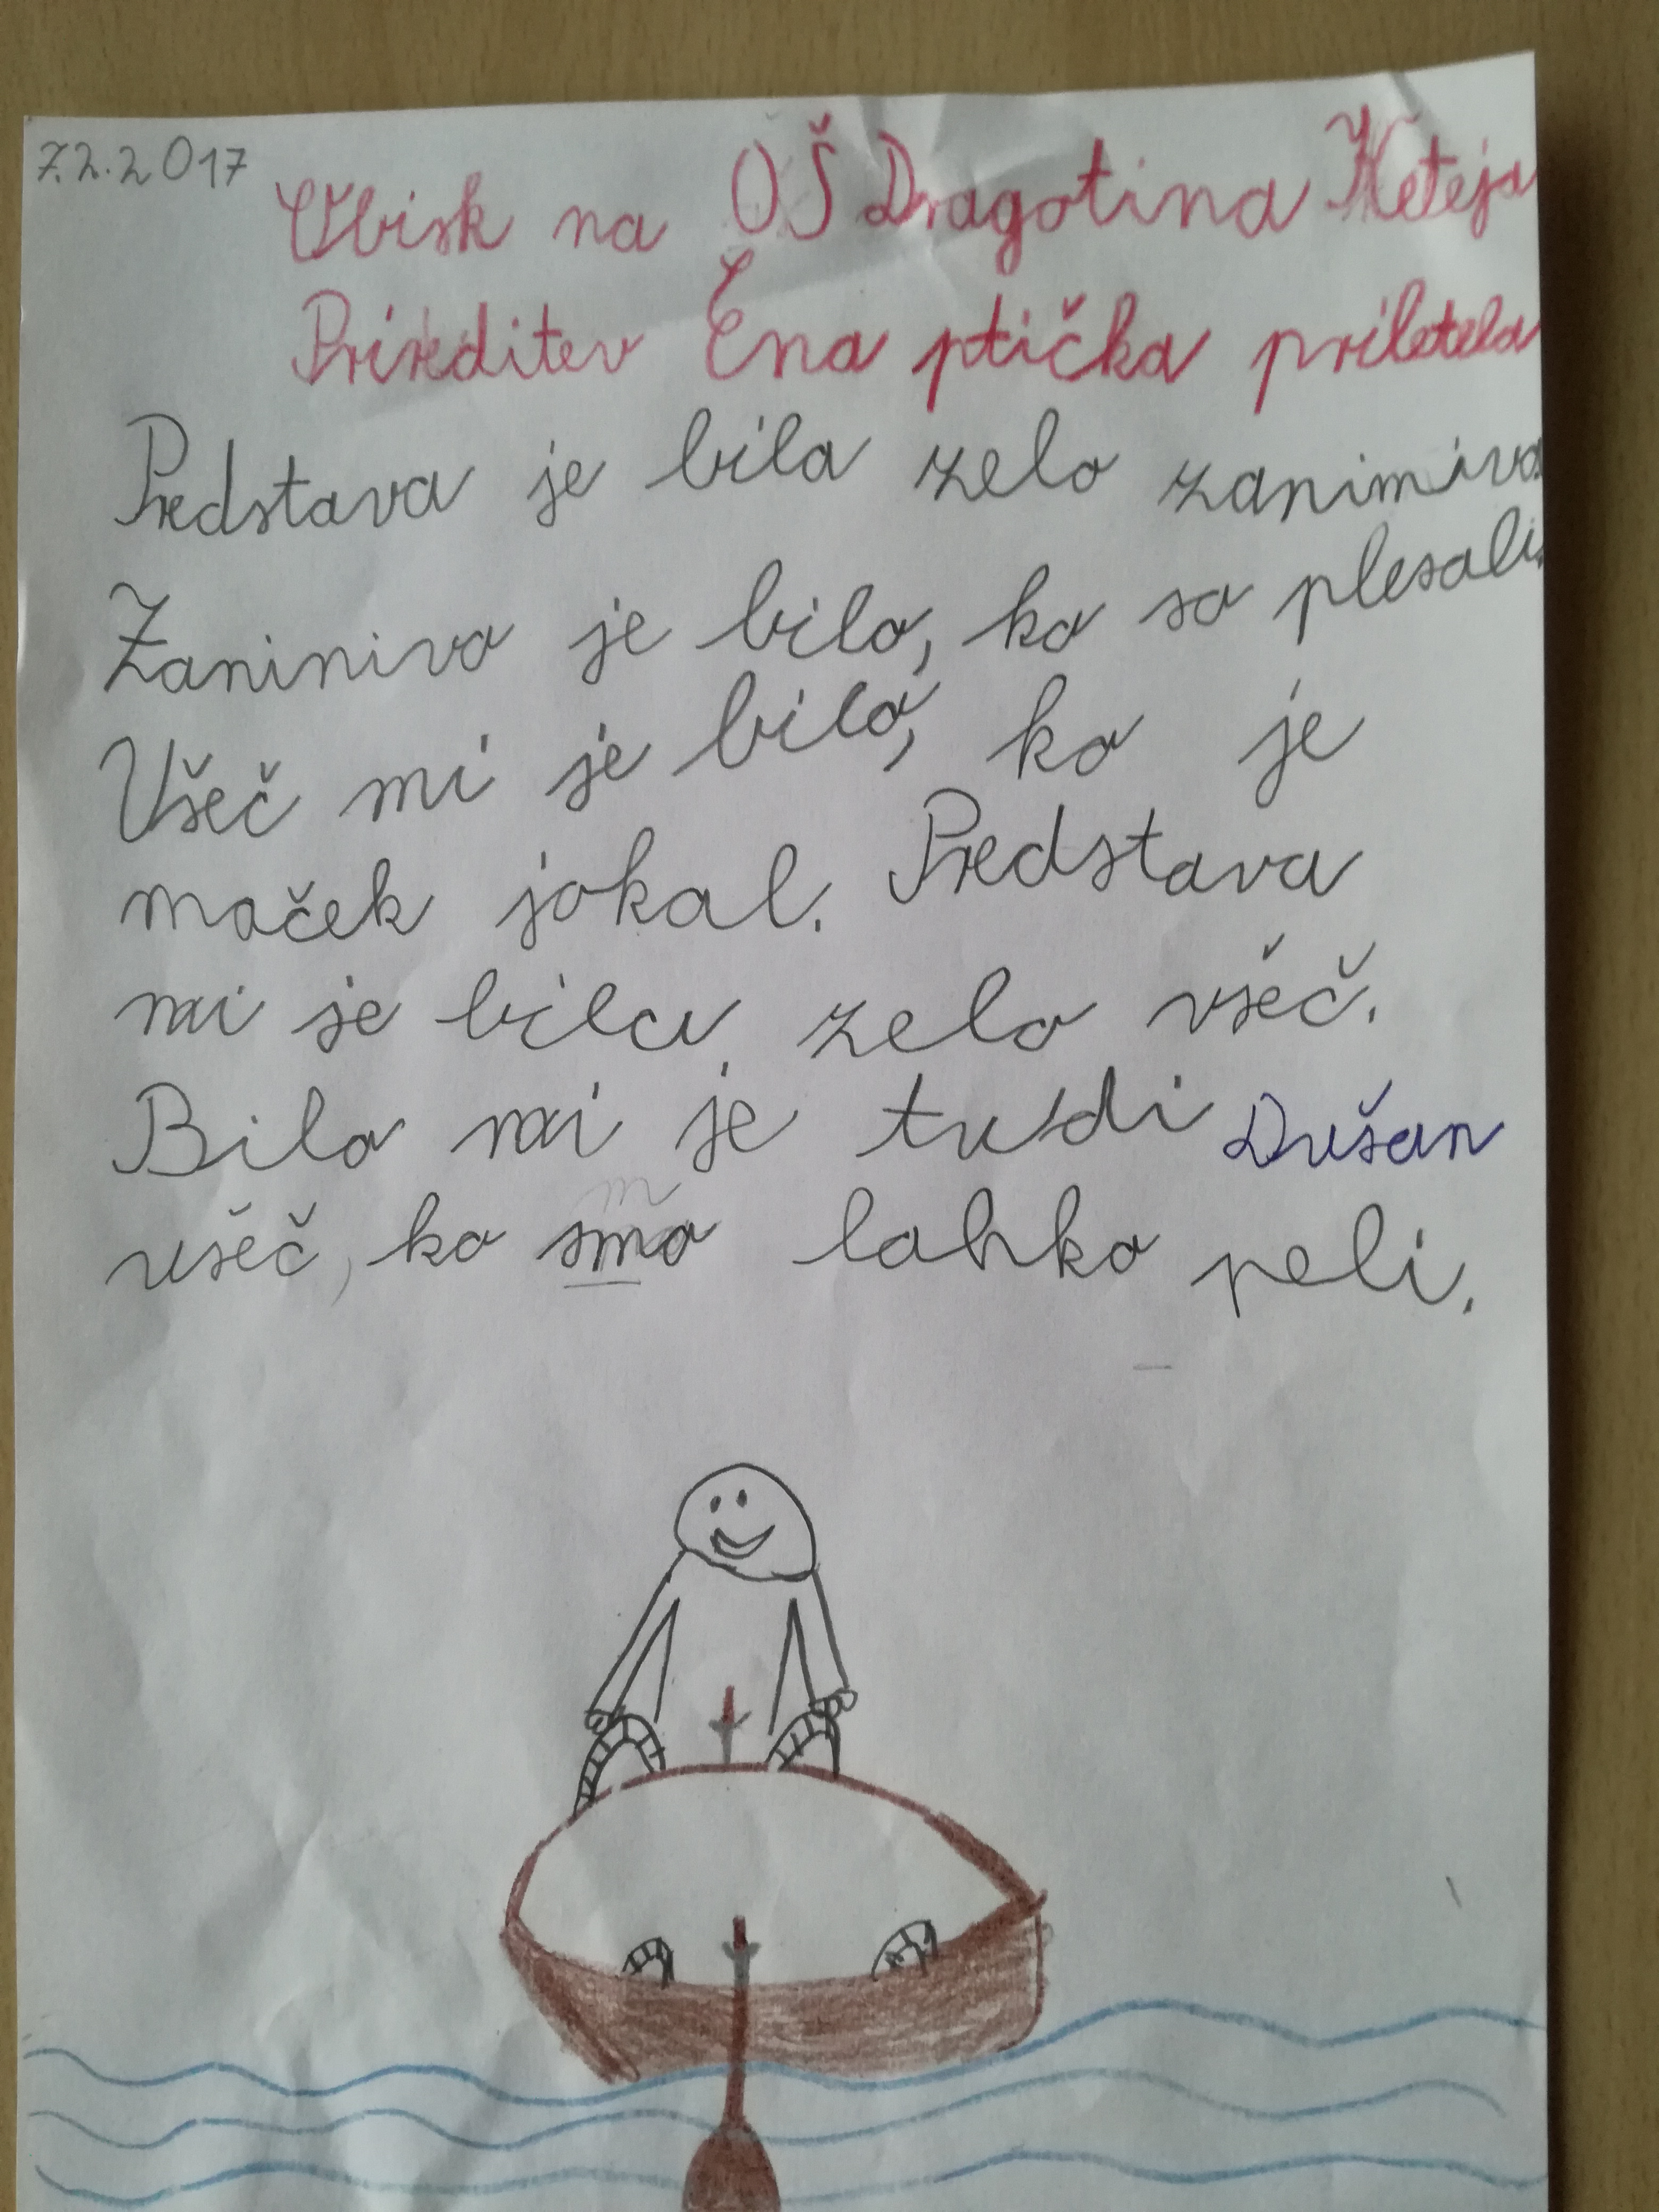 7.2.2017
Obisk na OŠ Dragotina Keteja
Prireditev Ena ptička priletela
Predstava je bila zelo zanimiva
Zaninivo je bilo, ko so plesali.
Všeč mi je bilo, ko je
maček jokal. Predstava
mi je bila zelo všeč.
Bilo mi je tudi Dušan
všeč, ko smo lahko peli.